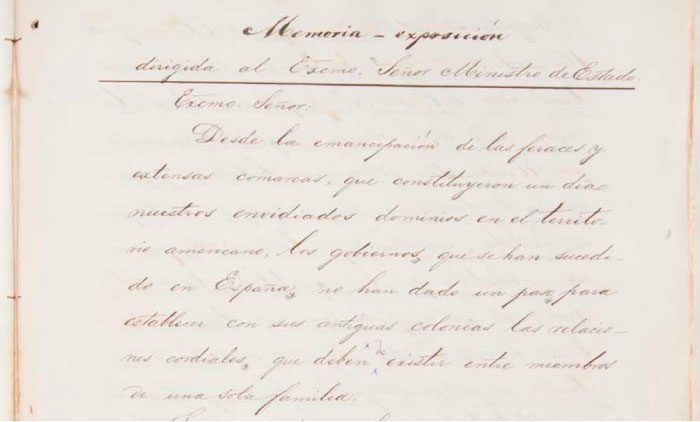 Memoria - exposición
dirigida al Excmo. Señor Ministro de Estado
Excmo. Señor:
Desde la emancipación de las feraces y
extensas comarcas, que constituyeron un dia
nuestros envidiados dominios en el territo-
rio americano, los gobiernos, que se han sucedi-
do en España, no han dado un paso, para
establecer con sus antiguas colonias las relacio-
nes cordiales, que deben de existir entre miembros
de una sola familia.